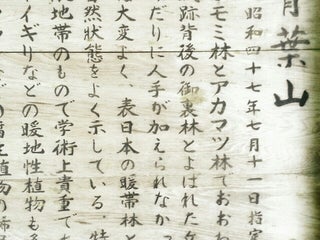 青葉山
昭和四十七年七月十一日指定
モミ林とアカマツ林でおおわ
跡背後の御裏林とよばれた
だりに人手が加えられなかっ
大変よく、表日本の暖帯林と
然状態をよく示している。特
地帯のもので学術上貴重で
イイギリなどの暖地性植物も